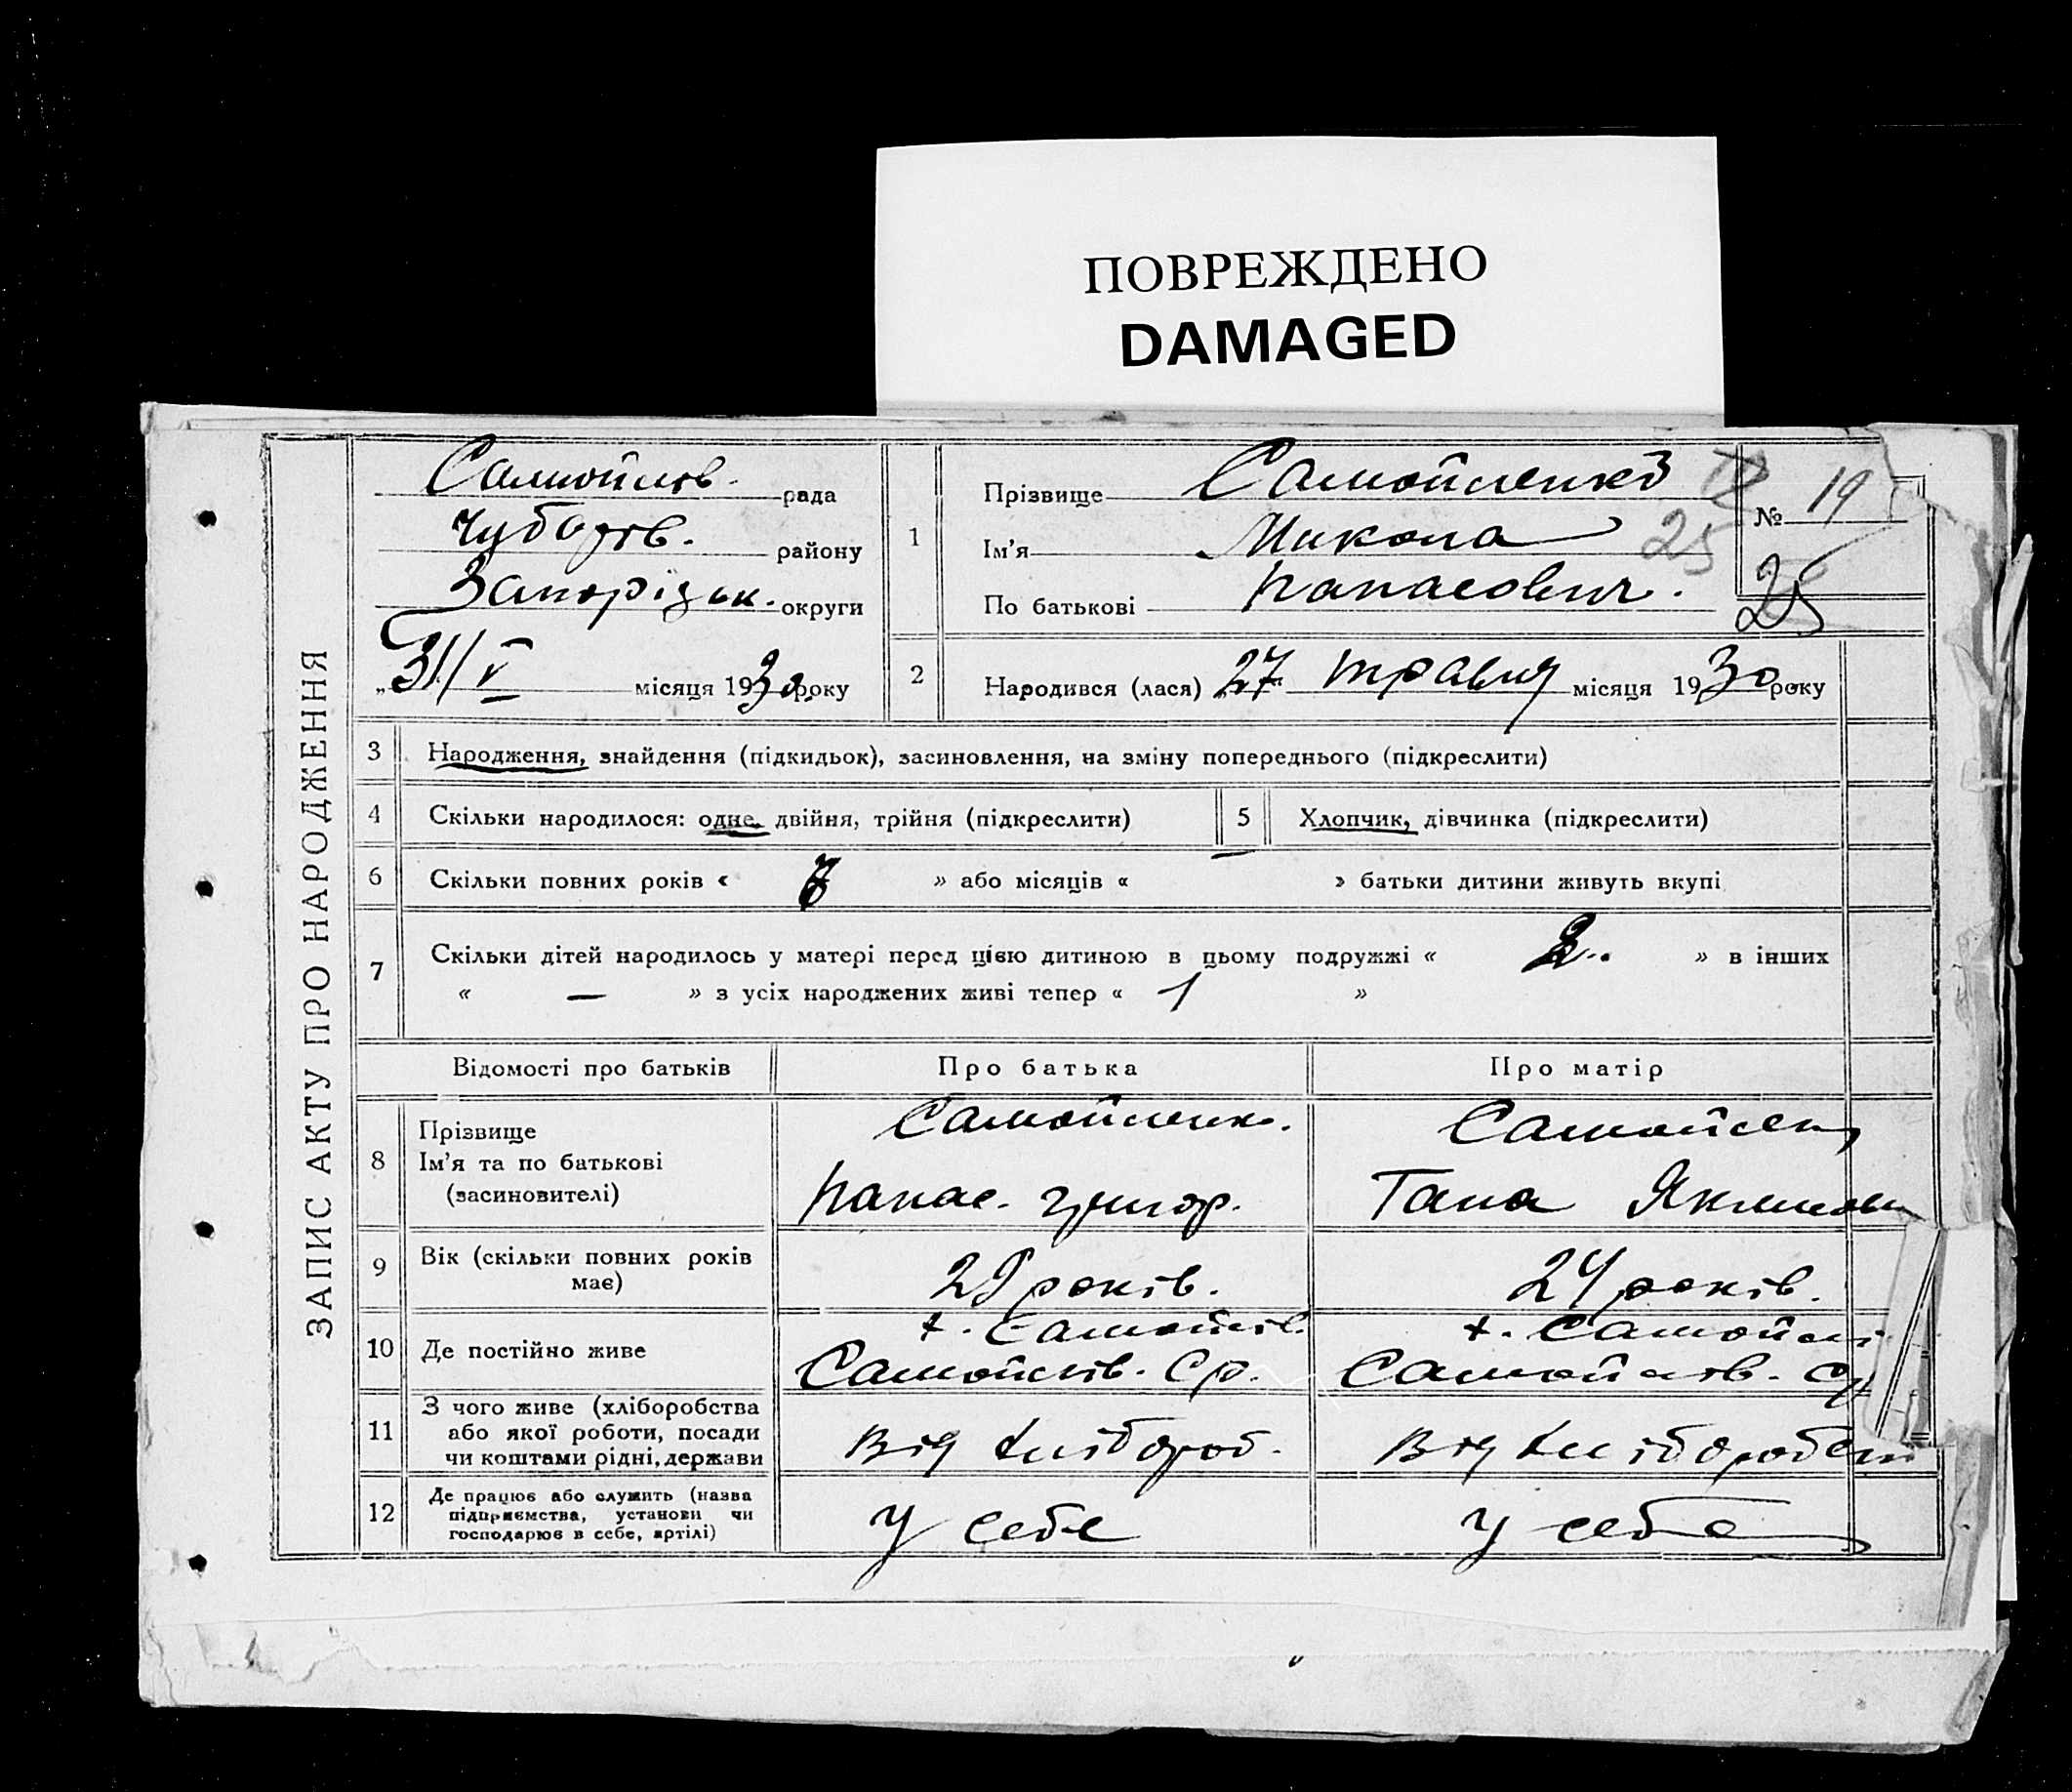 ПОВРЕЖДЕНО
DAMAGED
ЗАПИС АКТУ ПРО НАРОДЖЕННЯ
Самойлов. рада
Чубарів. району
Запорізьк. округи
„31/V місяця 1930 року
1 Прізвище Самойленко
Ім'я Микола
По батькові Панасович.
№ 19
25
25
2 Народився (лася) 27 травня місяця 1930 року
3 Народження, знайдення (підкидьок), засиновлення, на зміну попереднього (підкреслити)
4 Скільки народилося: одне, двійня, трійня (підкреслити) 5 Хлопчик, дівчинка (підкреслити)
6 Скільки повних років « » або місяців « » батьки дитини живуть вкупі
7 Скільки дітей народилось у матері перед цією дитиною в цьому подружжі « 2.. » в інших
« — » з усіх народжених живі тепер « 1 »
Відомості про батьків Про батька Про матір
8 Прізвище
Ім'я та по батькові
(засиновителі)
Самойленк.
Панас. Григор.
Самойлен
Гана Якимовн
9 Вік (скільки повних років
має)
29 років.
24 років.
10 Де постійно живе
х. Самойлів.
Самойлів. ср.
х. Самойлі
Самойлів. ср
11 З чого живе (хліборобства
або якої роботи, посади
чи коштами рідні, держави
Від хлібороб.
Від хліборобств
12 Де працює або служить (назва
підприємства, установи чи
господарює в себе, артілі)
У себе
У себе